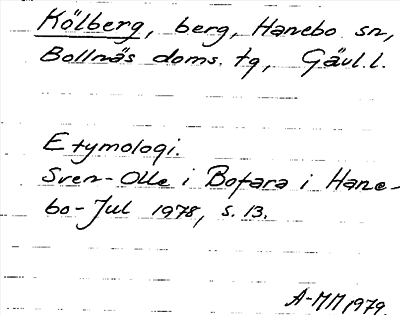 Kölberg, berg, Hanebo sn,
Bollnäs doms. tg, Gävl.l.
Etymologi.
Sven-Olle i Bofara i Hane-
bo-Jul 1978, s. 13.
A-MM 1979.